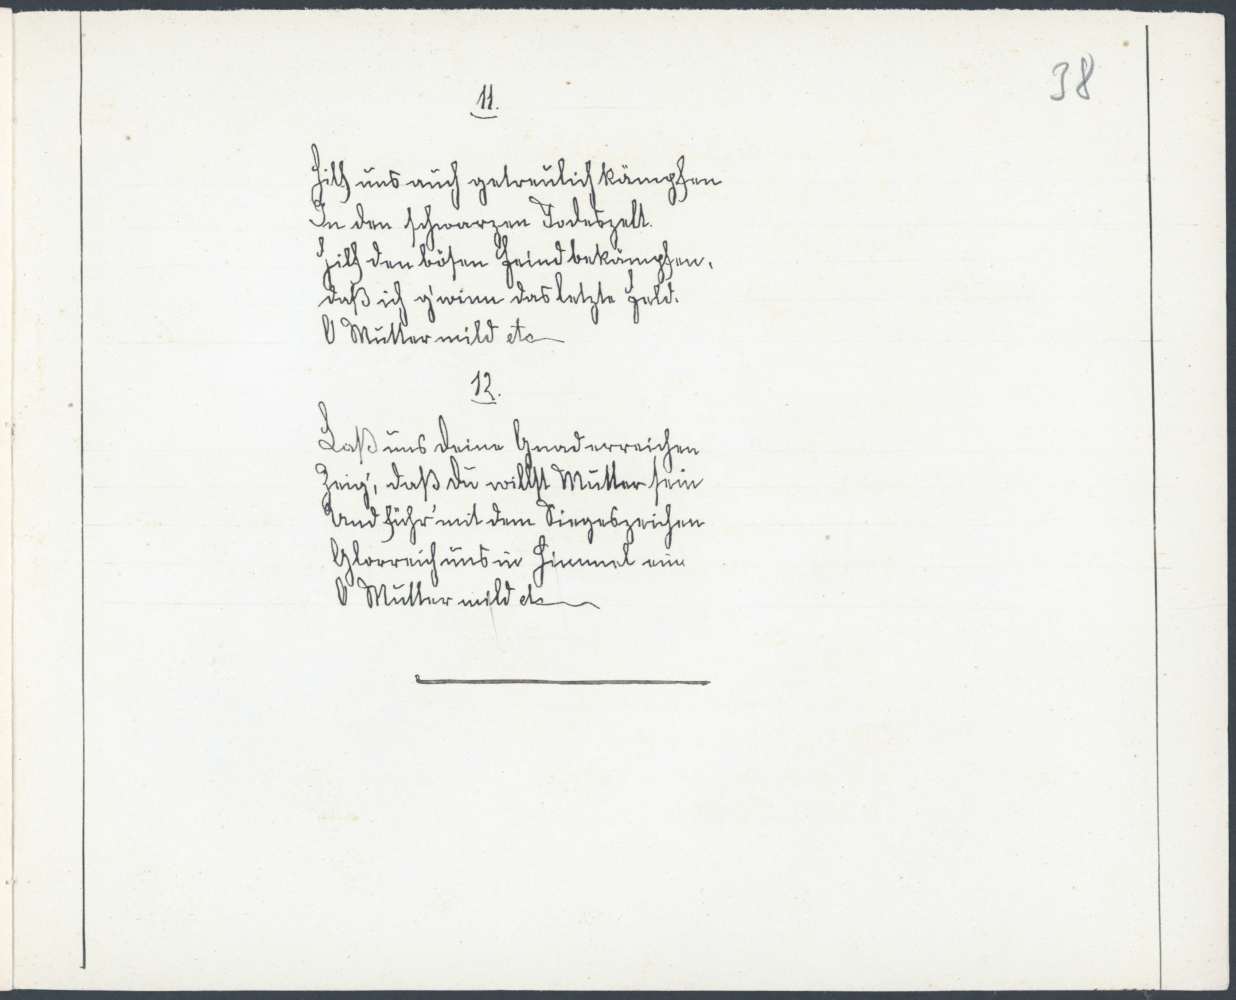 38
11.
Hilf uns auch getreulich kämpfen
In den schwarzen Todeszelt.
Hilf den bösen Feind bekämpfen,
daß ich g'winn das letzte Feld.
O Mutter mild etc
12.
Laß uns deine Gnad erreichen
Zeig', daß du willst Mutter sein
Und führ' mit dem Siegeszeichen
Glorreich uns in Himmel ein
O Mutter mild etc